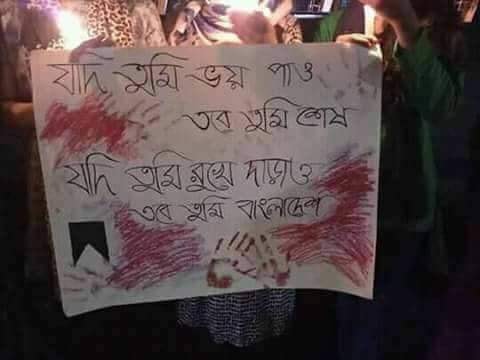 যদি তুমি ভয় পাও
তবে তুমি শেষ
যদি তুমি রুখে দাড়াও
তবে তুমি বাংলাদেশ